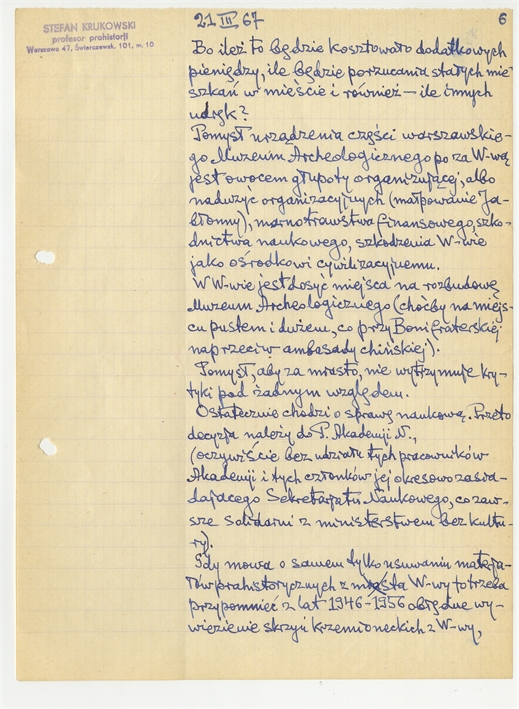 STEFAN KRUKOWSKI
profesor prehistorji
Warszawa 47, Świerczewsk. 101, m. 10
21 III 67
6
Bo ileż to będzie kosztowało dodatkowych
pieniędzy, ile będzie porzucania stałych mie-
szkań w mieście i również — ile innych
udręk?
Pomysł urządzenia części warszawskie-
go Muzeum Archeologicznego poza W-wą
jest owocem głupoty organizującej, albo
nadużyć organizacyjnych (małpowanie Ja-
błonny), marnotrawstwa finansowego, szko-
dnictwa naukowego, szkodzenia W-wie
jako ośrodkowi cywilizacyjnemu.
W W-wie jest dosyć miejsca na rozbudowę
Muzeum Archeologicznego (choćby na miejs-
cu pustem i dużem, co przy Bonifraterskiej
naprzeciw ambasady chińskiej).
Pomysł, aby za miasto, nie wytrzymuje kry-
tyki pod żadnym względem.
Ostatecznie chodzi o sprawę naukową. Przeto
decyzja należy do P. Akademji N.,
(oczywiście bez udziału tych pracowników
Akademji i tych członków jej okresowo zasia-
dającego Sekretarjatu Naukowego, co zaw-
sze solidarni z ministerstwem bez kultu-
ry).
Gdy mowa o samem tylko usuwaniu materja-
łów prahistorycznych z miasta W-wy to trzeba
przypomnieć z lat 1946-1956 obłędne wy-
wiezienie skrzyń krzemioneckich z W-wy,